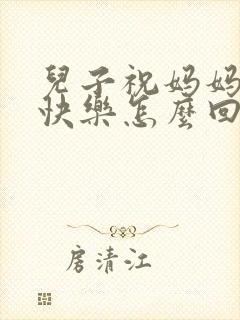 兒子祝媽媽
快樂怎麼回
房清江